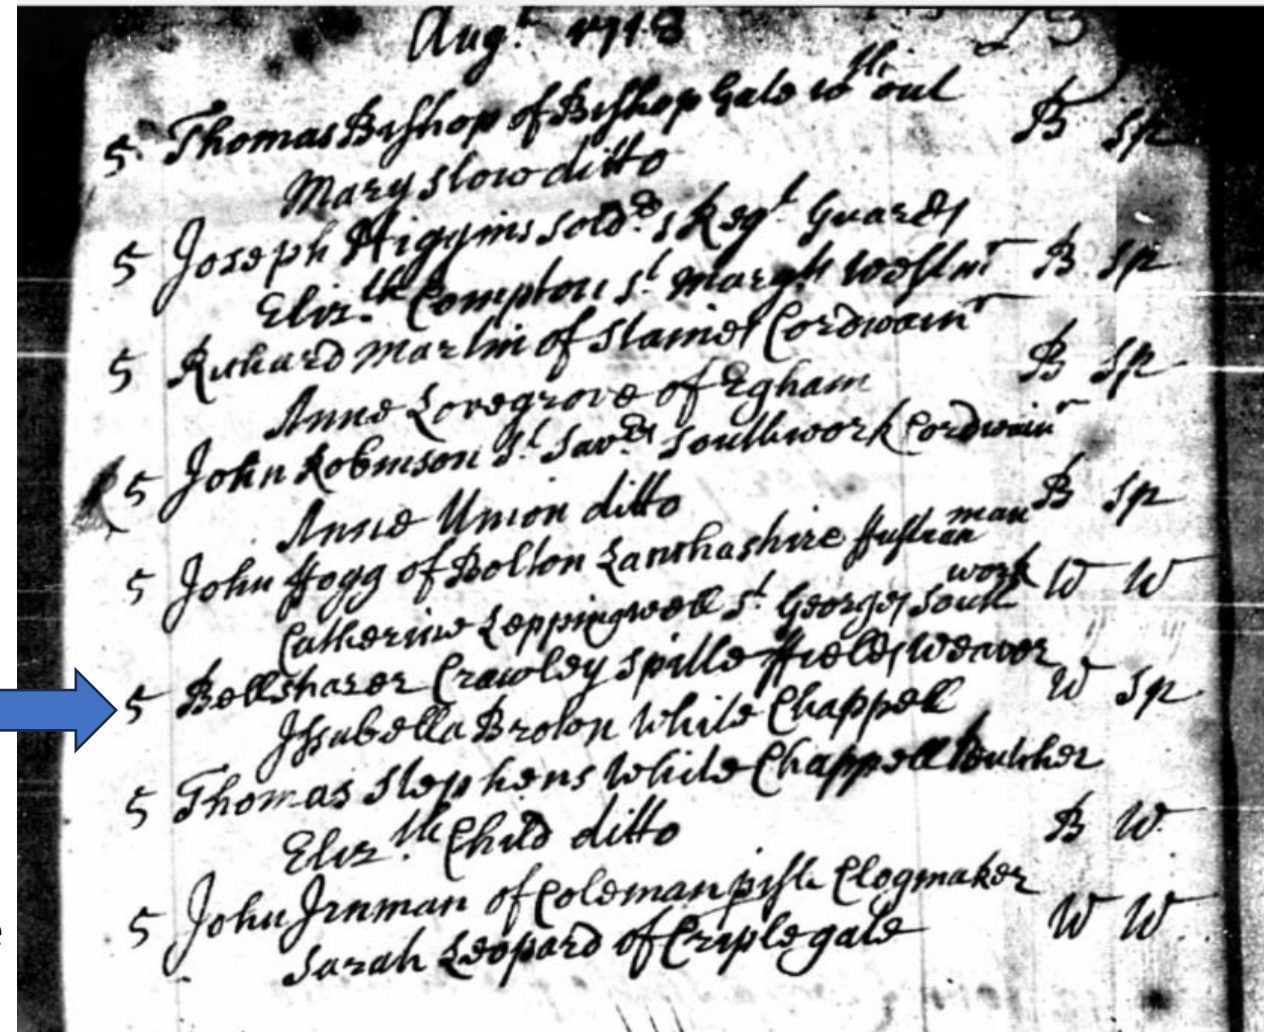 Aug.t 1718
5 Thomas Bishop of Bishop Gate wth out B Sp
Mary Slow ditto
5 Joseph Higgins Sold.r Reg.t Guards
Eliz.th Compton St Margts Westmr B Sp
5 Richard Martin of Staines Cordwainr
Anne Lovegrove of Egham B Sp
5 John Robinson St Savrs Southwork Cordwainr
Anne Union ditto B Sp
5 John Hogg of Bolton Lanchashire ffustian man
Catherine Leppingwell St Georges South work W W
5 Bellsharer Crawley Spittle ffields Weaver
Issabella Brown White Chappell W Sp
5 Thomas Stephens White Chappell Butcher
Eliz.th Child ditto B W
5 John Inman of Coleman pish Clogmaker
Sarah Leopard of Criplegate W W